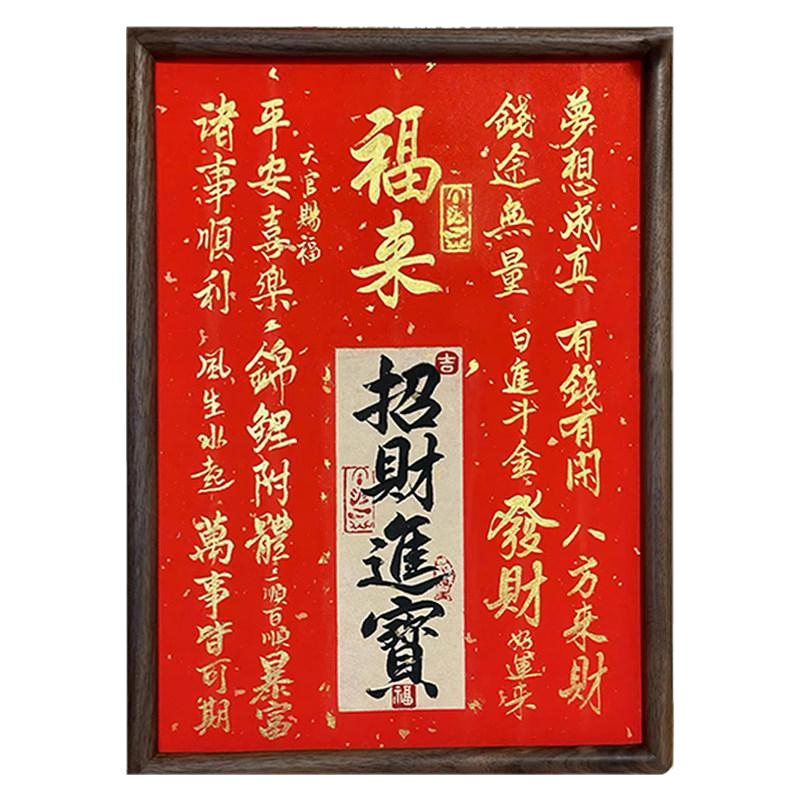 夢想成真 有錢有閑 八方来財
錢途無量 日進斗金 發財 好運来
福来
吉
招財進寶
福
天官賜福
平安喜樂 錦鯉附體 一順百順 暴富
諸事順利 風生水起 萬事皆可期